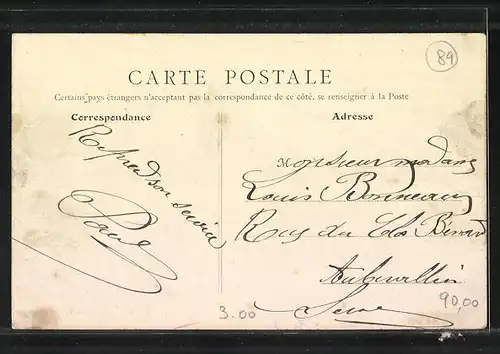 89
CARTE POSTALE
Certains pays étrangers n'acceptant pas la correspondance de ce côté, se renseigner à la Poste
Correspondance
Adresse
Reprend son service
Paul
Monsieur madame
Louis Bonneau
Rue du Clos Bénard
Aubervilliers
Seine
3.00
90,00